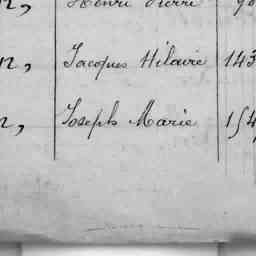 Henri Pierre
n, Jacques Hilaire 143
n, Joseph Marie 154